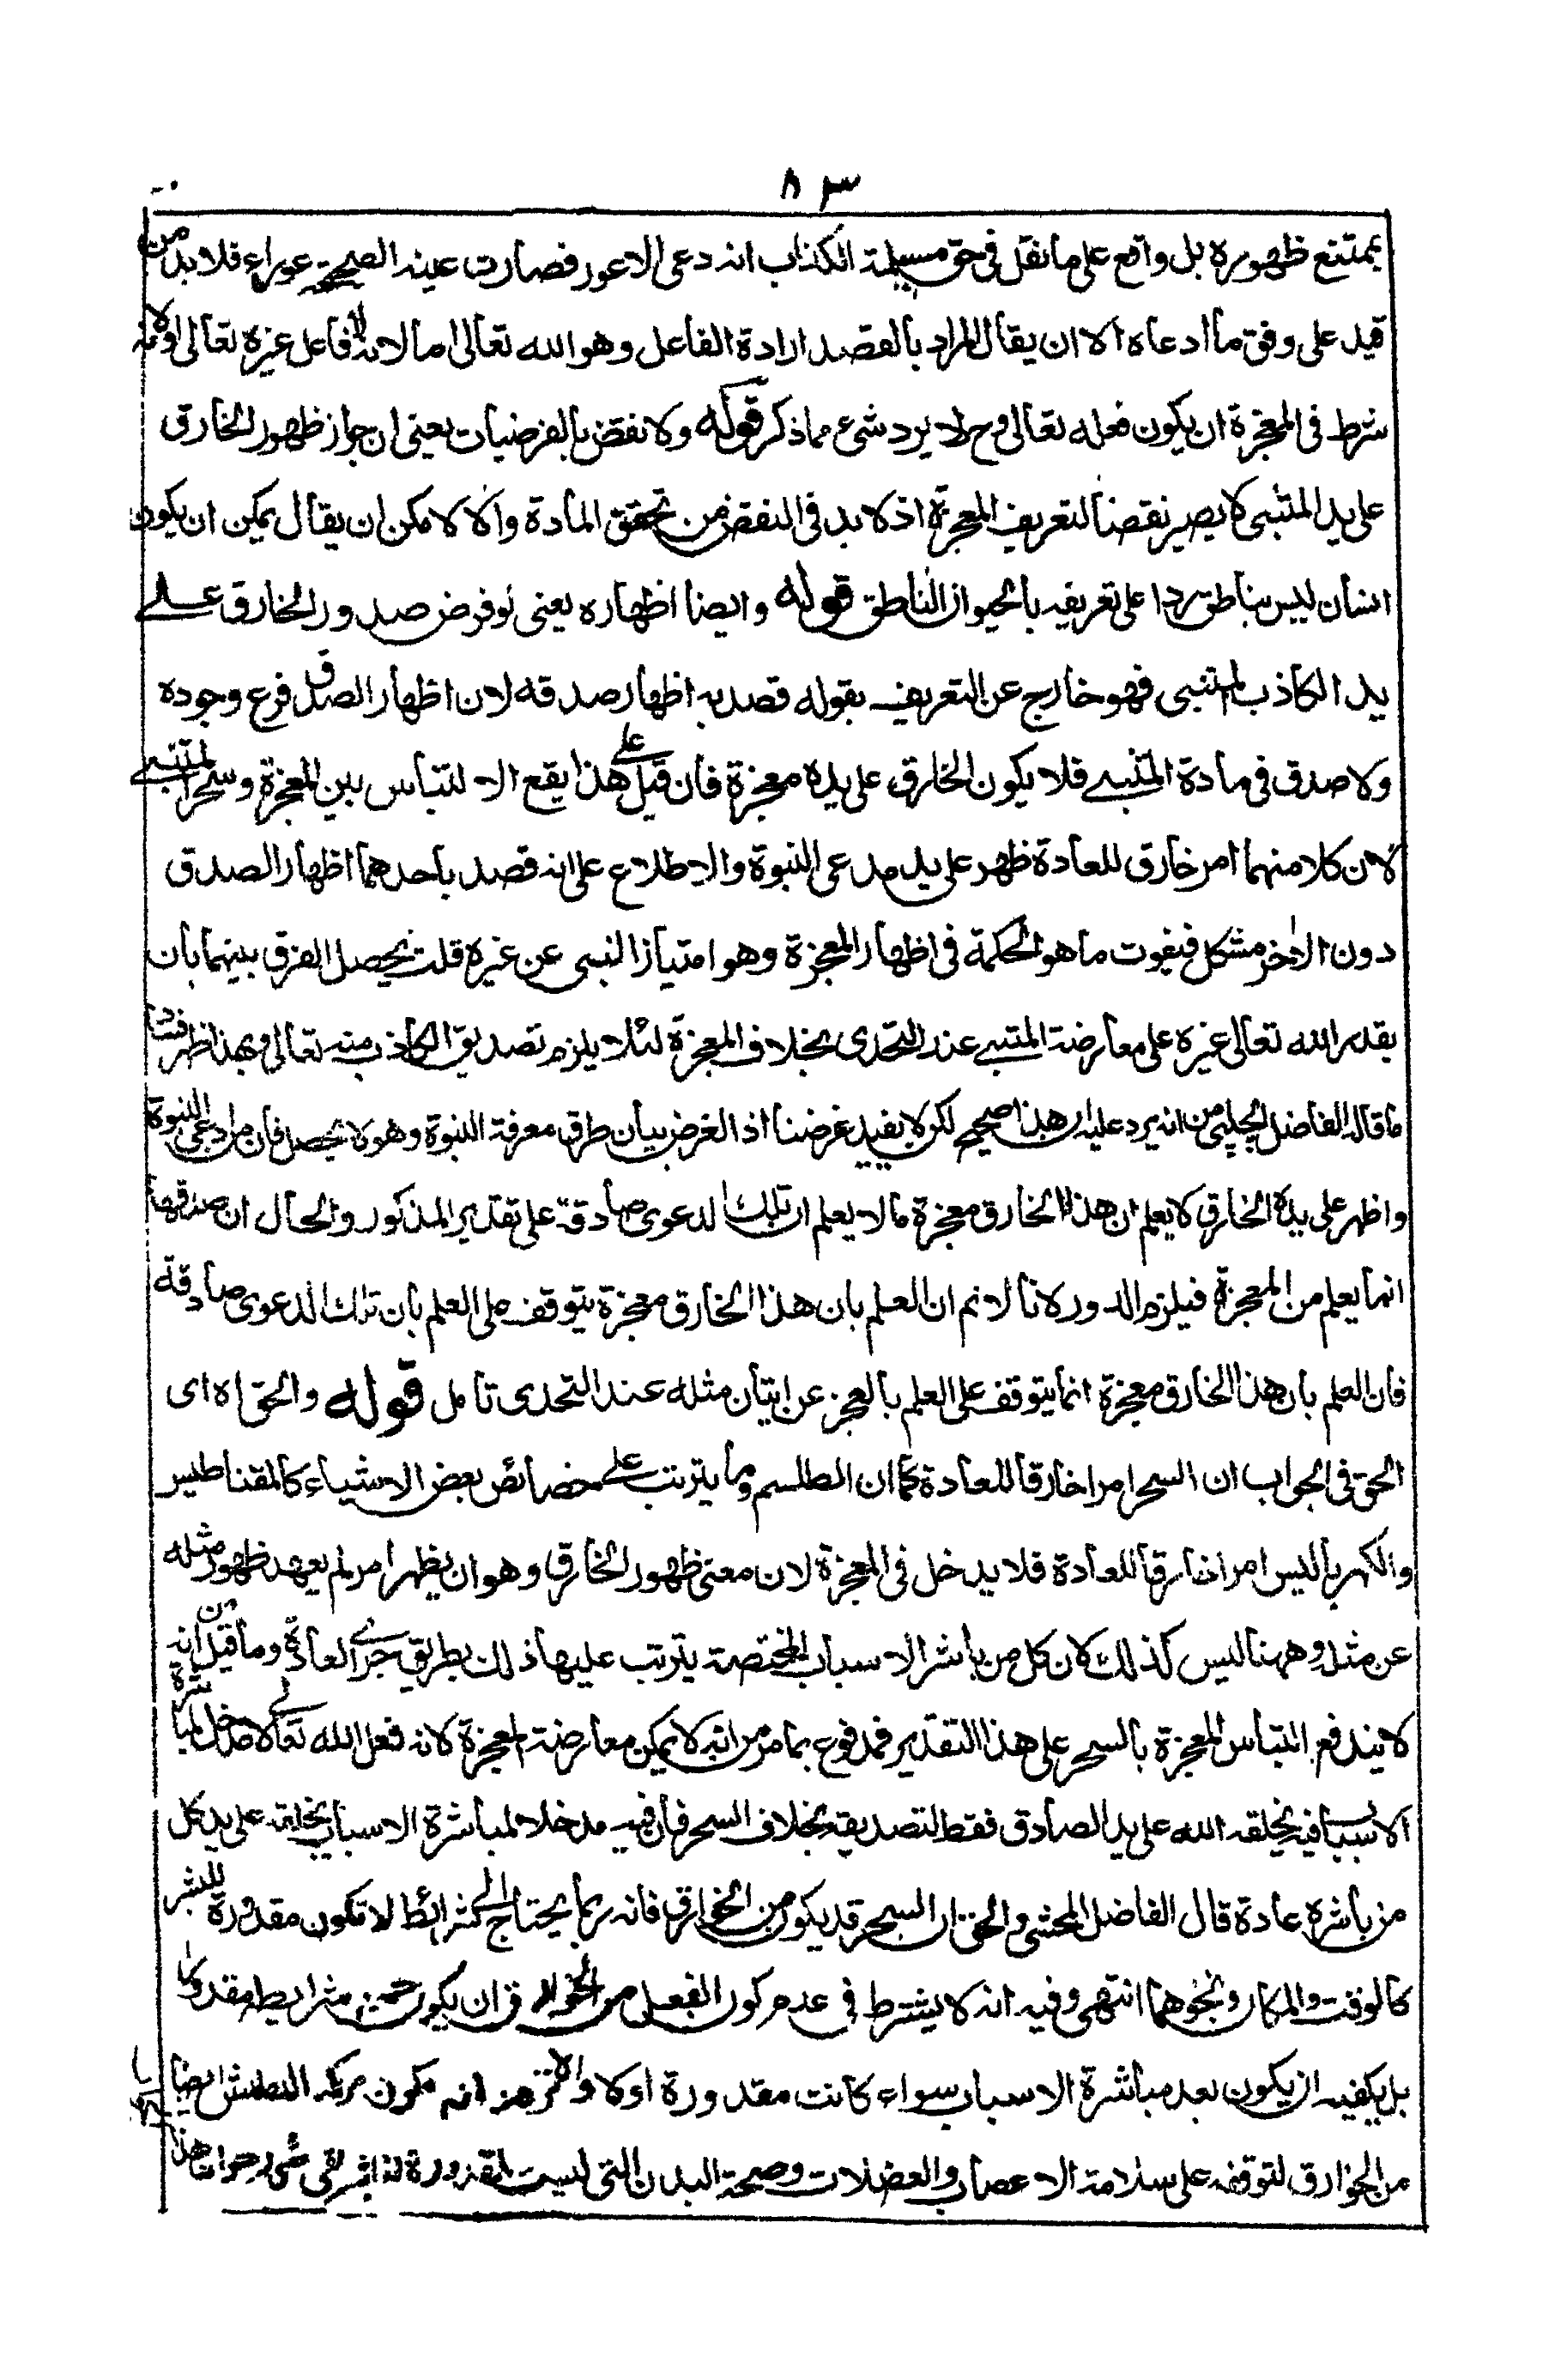 ٨٣
يمتنع ظهوره بل واقع على ما نقل فى حق مسيلمة الكذاب انه دعى الاعور فصارت عينه الصحيحة عوراء فلا بد من
قيد على وفق ما ادعاه الا ان يقال المراد بالقصد ارادة الفاعل وهو الله تعالى اما لانه لا فاعل غيره تعالى او لانه
شرط فى المعجزة ان يكون فعله تعالى وح لا يرد شئ مما ذكر قوله ولا نقض بالفرضيات يعنى ان جواز ظهور الخارق
على يد المتنبى لا يصير نقضا لتعريف المعجزة اذ لا بد فى النقض من تحقق المادة والا لامكن ان يقال يمكن ان يكون
انسان ليس بناطق ردا على تعريفه بالحيوان الناطق قوله وايضا اظهاره يعنى لو فرض صدور الخارق على
يد الكاذب المتنبى فهو خارج عن التعريف بقوله قصد به اظهار صدقه لان اظهار الصدق فرع وجوده
ولا صدق فى مادة المتنبى فلا يكون الخارق على يده معجزة فان قيل على هذا يقع الالتباس بين المعجزة وسحر المتنبى
لان كلا منهما امر خارق للعادة ظهر على يد مدعى النبوة والاطلاع على انه قصد باحدهما اظهار الصدق
دون الاخر مشكل فيفوت ما هو الحكمة فى اظهار المعجزة وهو امتياز النبى عن غيره قلت يحصل الفرق بينهما بان
يقدر الله تعالى غيره على معارضة المتنبى عند التحدى بخلاف المعجزة لئلا يلزم تصديق الكاذب منه تعالى وبهذا ظهر فساد
ما قاله الفاضل الچلپى من انه يرد عليه ان هذا صحيح لكن لا يفيد غرضنا اذ الغرض بيان طرق معرفة النبوة وهو لا يحصل فان من ادعى النبوة
واظهر على يده الخارق لا يعلم ان هذا الخارق معجزة ما لا يعلم ان تلك الدعوى صادقة على تقدير المذكور والحال ان صدقها
انما يعلم من المعجزة فيلزم الدور لانا لا نم ان العلم بان هذا الخارق معجزة يتوقف على العلم بان تلك الدعوى صادقة
فان العلم بان هذا الخارق معجزة انما يتوقف على العلم بالعجز عن اتيان مثله عند التحدى تامل قوله والحق اه اى
الحق فى الجواب ان السحر امرا خارقا للعادة كما ان الطلسم وما يترتب على خصائص بعض الاشياء كالمقناطيس
والكهربا ليس امرا خارقا للعادة فلا يدخل فى المعجزة لان معنى ظهور الخارق وهو ان يظهر امر لم يعهد ظهور مثله
عن مثله وههنا ليس كذلك لان كل من باشر الاسباب المختصة يترتب عليها ذلك بطريق جرى العادة وما قيل من انه
لا يندفع التباس المعجزة بالسحر على هذا التقدير فمدفوع بما مر من انه لا يمكن معارضة المعجزة لانه فعل الله تعالى لا مدخل لمباشرة
الاسباب فيه يخلقه الله على يد الصادق فقط لتصديقه بخلاف السحر فان فيه مدخلا لمباشرة الاسباب يخلقه على يد كل
من باشره عادة قال الفاضل المحشى والحق ان السحر قد يكون من الخوارق فانه ربما يحتاج الى شرائط لا تكون مقدورة للبشر
كالوقت والمكان ونحوهما انتهى وفيه انه لا يشترط فى عدم كون الفعل من الخوارق ان يكون جميع شرايطه مقدورا
بل يكفيه ان يكون بعد مباشرة الاسباب سواء كانت مقدورة اولا والا لزم انه يكون حركة البطش ايضا
من الخوارق لتوقفه على سلامة الاعصاب والعضلات وصحة البدن التى ليست بمقدورة